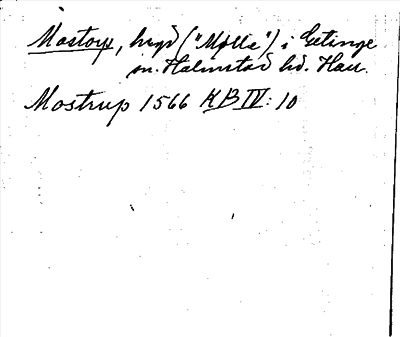 Mostorp, bzyd ("Mølle") i Getinge
sn. Halmstad hd. Hall.
Mostrup 1566 KB IV: 10